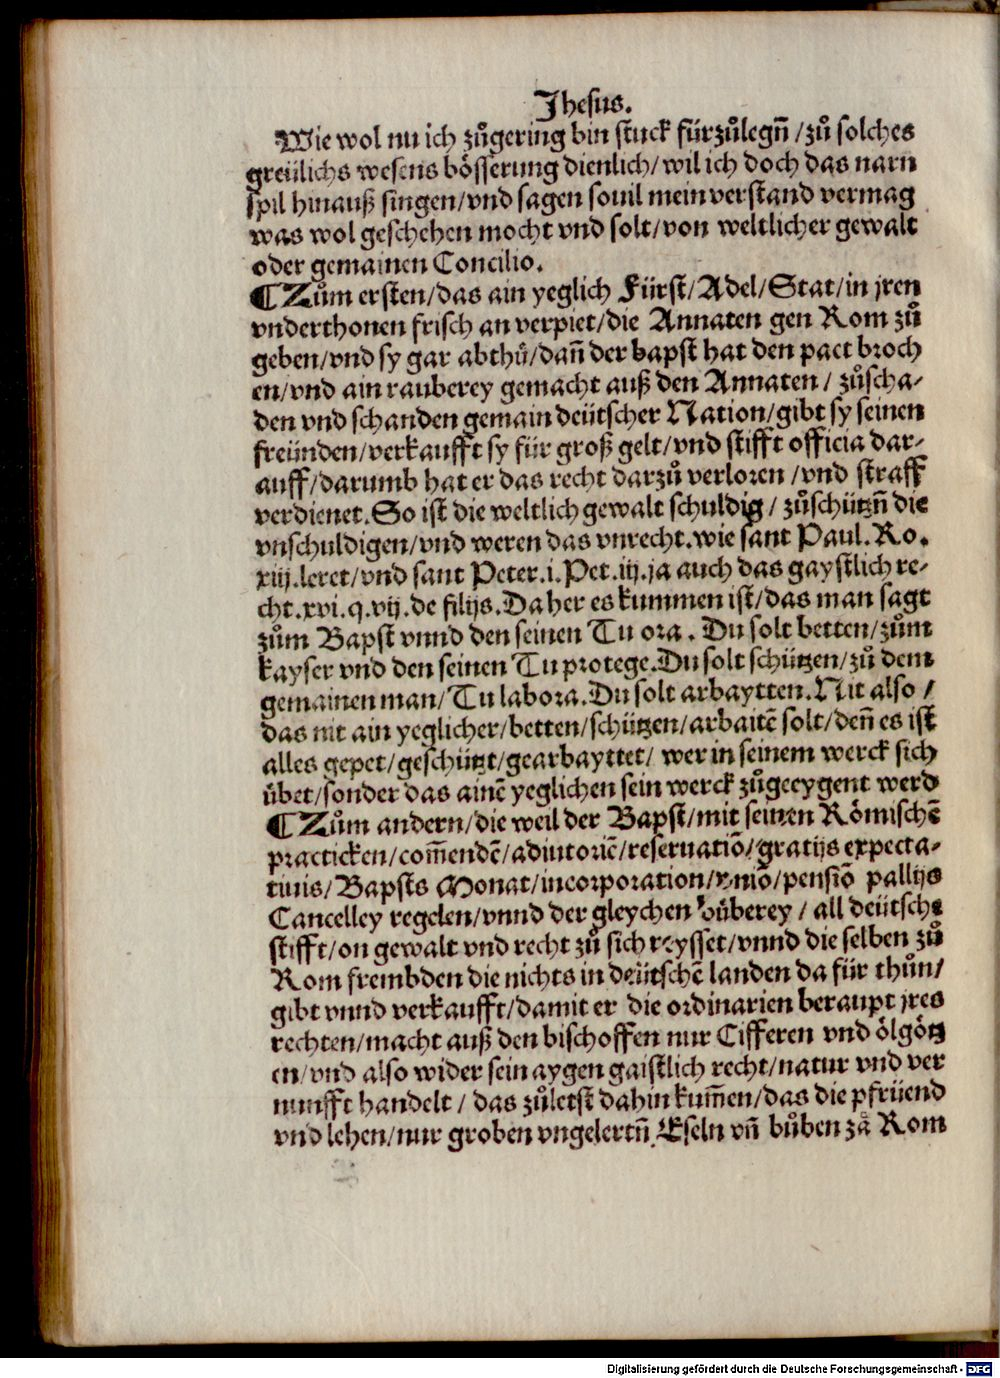 Jhesus.
Wie wol nu ich zůgering bin stuck fürzůlegñ / zů solches
greülichs wesens bösserung dienlich / wil ich doch das narn
spil hinauß singen / vnd sagen souil mein verstand vermag
was wol geschehen mocht vnd solt / von weltlicher gewalt
oder gemainen Concilio.
¶ Zům ersten / das ain yeglich Fürst / Adel / Stat / in jren
vnderthonen frisch an verpiet / die Annaten gen Rom zů
geben / vnd sy gar abthů / dañ der bapst hat den pact broch
en / vnd ain rauberey gemacht auß den Annaten / zůscha-
den vnd schanden gemain deütscher Nation / gibt sy seinen
freünden / verkaufft sy für groß gelt / vnd stifft officia dar-
auff / darumb hat er das recht darzů verloren / vnd straff
verdienet. So ist die weltlich gewalt schuldig / zůschützñ die
vnschuldigen / vnd weren das vnrecht. wie sant Paul. Ro.
xiij. leret / vnd sant Peter. i. Pet. iij. ja auch das gaystlich re-
cht. xvi. q. vij. de filijs. Da her es kummen ist / das man sagt
zům Bapst vnnd den seinen Tu ora. Du solt betten / zům
kayser vnd den seinen Tu protege. Du solt schützen / zů dem
gemainen man / Tu labora. Du solt arbaytten. Nit also /
das nit ain yeglicher / betten / schützen / arbaitē solt / deñ es ist
alles gepet / geschützt / gearbayttet / wer in seinem werck sich
übet / sonder das ainē yeglichen sein werck zůgeeygent werd
¶ Zům andern / die weil der Bapst / mit seinen Römischē
practicken / com̄endē / adiutoriē / reseruatiō / gratijs expecta-
tiuis / Bapsts Monat / incorporation / vniō / pensiō pallijs
Cancelley regelen / vnnd der gleychen büberey / all deütsche
stifft / on gewalt vnd recht zů sich reysset / vnnd die selben zů
Rom frembden die nichts in deütschē landen da für thůn /
gibt vnnd verkaufft / damit er die ordinarien beraupt jres
rechten / macht auß den bischoffen nur Cifferen vnd ölgötz
en / vnd also wider sein aygen gaistlich recht / natur vnd ver
nunfft handelt / das zůletst dahin kum̄en / das die pfrüend
vnd lehen / nur groben vngelertñ Eseln vñ bůben zů Rom
Digitalisierung gefördert durch die Deutsche Forschungsgemeinschaft - DFG